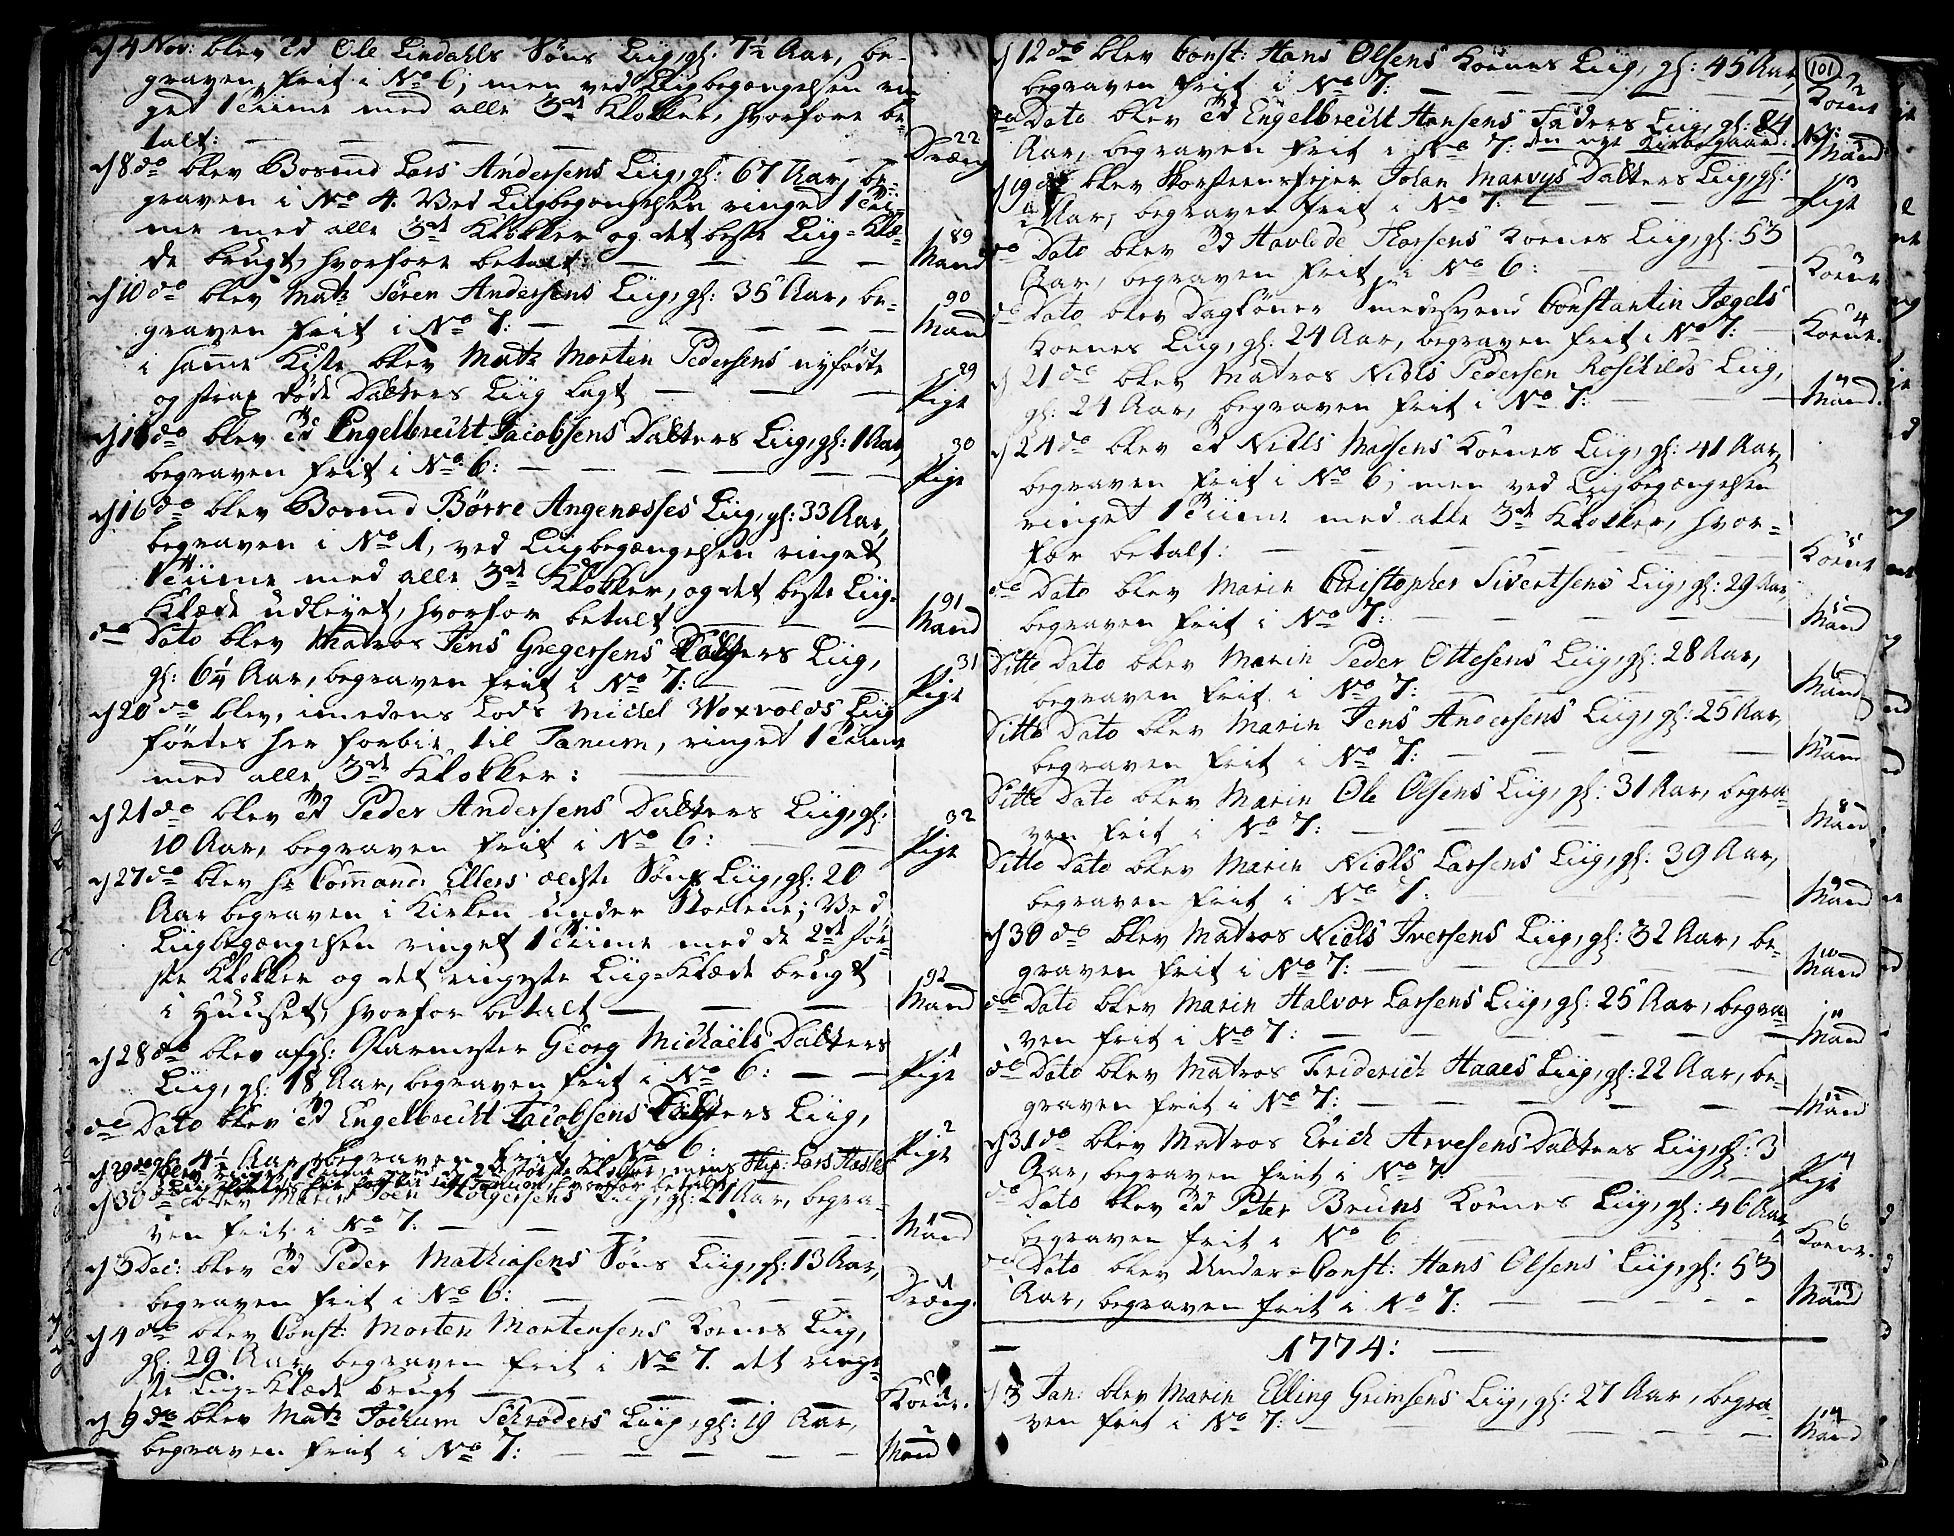 d 4 Nov: blev Ed Ole Lindahls Søns Liig, gl: 7½ Aar, be-
graven frit i No 6; men ved Liigbegængelsen rin-
get 1 Tiime med alle 3de Klokker, hvorfore be-
talt: — 22 Dræng
d 8 do blev Bosmd Lars Andersens Liig, gl: 67 Aar, be-
graven i No 4. Ved Liigbegængelsen ringet 1 Tii-
me med alle 3de Klokker og det beste Liig-Klæ-
de brugt, hvorfore betalt — 89 Mand
d 10 do blev Matr Søren Andersens Liig, gl: 35 Aar, be-
graven frit i No 7: — 90 Mand
i samme Kiste blev Matr Morten Pedersens nyfødte
og strax døde Datters Liig lagt — 29 Pige
do blev Ed Engelbrecht Jacobsens Datters Liig, gl: 1 Aar,
begraven frit i No 6: — 30 Pige
d 16 do blev Bosmd Børre Angenæsses Liig, gl: 33 Aar,
begraven i No 1, ved Liigbegængelsen ringet
1 Tiime med alle 3de Klokker, og det beste Liig-
Klæde udleyet, hvorfor betalt — 91 Mand
do Dato blev Matros Jens Gregersens Datters Liig,
gl: 6¼ Aar, begraven frit i No 7: — 31 Pige
d 20 do blev, imedens Lods Michel Woxvolds Liig
førtes her forbie til Tanum, ringet 1 Tiime
med alle 3de Klokker: —
d 21 do blev Ed Peder Andersens Datters Liig, gl:
10 Aar, begraven frit i No 6: — 32 Pige
d 27 do blev Hr Command: Ellers ældste Søns Liig, gl: 20
Aar begraven i Kirken under Stoelene; Ved
Liigbegængelsen ringet 1 Tiime med de 2de før-
ste Klokker og det ringeste Liig-Klæde brugt
i Huuset, hvorfor betalt — 92 Mand
d 28 do blev afgl: Georg Michaëls Datters
Liig, gl: 18 Aar, begraven frit i No 6: — 1 Pige
do Dato blev Ed Engelbrecht Jacobsens Datters Liig,
gl: 4½ Aar, begraven frit i No 6: — 2 Pige
d 29 do blev ringet 1 Tiime med de 2de største Klokker, mens Skip: Lars
Liig førtes her forbie til Tanum, hvorfor betalt:
d 30 do blev Marin Joen Holgersens Liig, gl: 21 Aar, begra-
ven frit i No 7. — 1 Mand
d 3 Dec: blev Ed Peder Mathiasens Søns Liig, gl: 13 Aar,
begraven frit i No 6: — 1 Dræng.
d 4 do blev Const: Morten Mortensens Koenes Liig,
gl: 29 Aar, begraven frit i No 7. det ringe-
ste Liig-Klæde brugt — 1 Koene.
d 9 do blev Matr Jochum Schrøders Liig, gl: 19 Aar,
begraven frit i No 7: — 2 Mand
101
d 12 do blev Const: Hans Olsens Koenes Liig, gl: 45 Aar,
begraven frit i No 7: — 2 Koene
do Dato blev Ed Engelbrecht Hansens Faders Liig, gl: 84
Aar, begraven frit i No 7: den nye Kirkegaard. — 3 Mand
d 19 do blev Skorsteensfejer Johan Marvys Datters Liig, gl:
Aar, begraven frit i No 7: — 3 Pige
do Dato blev Ed Havlede Thorsens Koenes Liig, gl: 53
Aar, begraven frit i No 6: — 3 Koene
do Dato blev Dagløner Smedesvend Constantin Jægels
Koenes Liig, gl: 24 Aar, begraven frit i No 7: — 4 Koene.
d 21 do blev Matros Niels Pedersen Roschilds Liig,
gl: 24 Aar, begraven frit i No 7: — 4 Mand.
d 24 do blev Ed Niels Madsens Koenes Liig, gl: 41 Aar,
begraven frit i No 6; men ved Liigbegængelsen
ringet 1 Tiime med alle 3de Klokker, hvor-
for betalt: — 5 Koene
do Dato blev Marin Christopher Sivertsens Liig, gl: 29 Aar
begraven frit i No 7: — 5 Mand
Ditto Dato blev Marin Peder Ottesens Liig, gl: 28 Aar,
begraven frit i No 7: — 6 Mand
Ditto Dato blev Marin Jens Andersens Liig, gl: 25 Aar,
begraven frit i No 7: — 7 Mand
Ditto Dato blev Marin Ole Olsens Liig, gl: 31 Aar, begra-
ven frit i No 7: — 8 Mand
Ditto Dato blev Marin Niels Larsens Liig, gl: 39 Aar,
begraven frit i No 7: — 9 Mand
d 30 do blev Matros Niels Iversens Liig, gl: 32 Aar, be-
graven frit i No 7: — 10 Mand
do Dato blev Marin Halvor Larsens Liig, gl: 25 Aar, begra-
ven frit i No 7: — 11 Mand
do Dato blev Matros Friderich Haaes Liig, gl: 22 Aar, be-
graven frit i No 7: — 12 Mand
d 31 do blev Matros Erich Arvesens Datters Liig, gl: 3
Aar, begraven frit i No 7. — 4 Pige
do Dato blev Ed Peter Bruns Koenes Liig, gl: 46 Aar,
begraven frit i No 6 — 6 Koene.
do Dato blev Under-Const: Hans Olsens Liig, gl: 53
Aar, begraven frit i No 7: — 13 Mand
— 1774: —
d 3 Jan: blev Marin Elling Grimsens Liig, gl: 27 Aar, begra-
ven frit i No 7: — 14 Mand